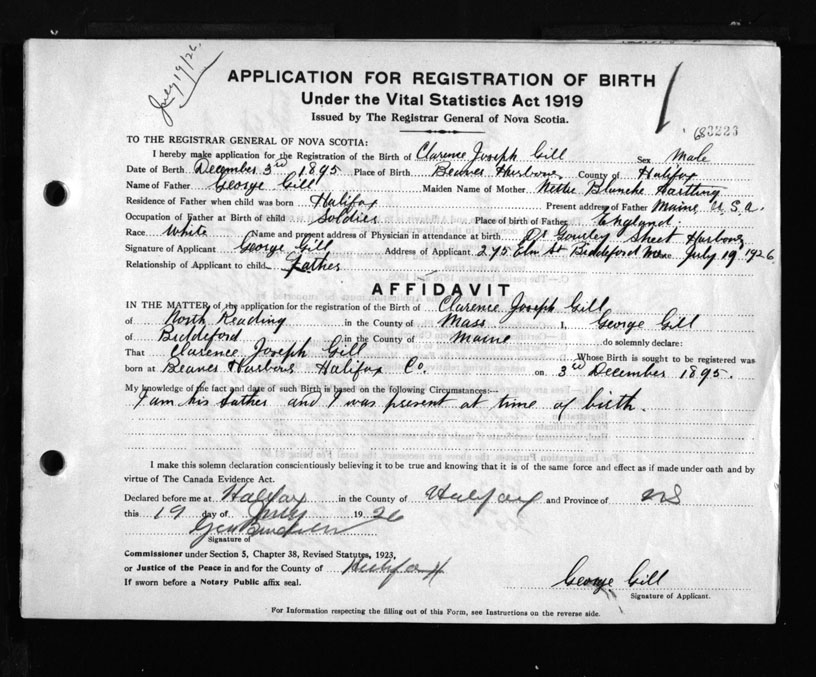 July 19/26.
APPLICATION FOR REGISTRATION OF BIRTH
Under the Vital Statistics Act 1919
Issued by The Registrar General of Nova Scotia.
63223
TO THE REGISTRAR GENERAL OF NOVA SCOTIA:
I hereby make application for the Registration of the Birth of Clarence Joseph Gill Sex Male
Date of Birth December 3rd 1895 Place of Birth Beaver Harbour County of Halifax
Name of Father George Gill Maiden Name of Mother Nettie Blanche Hartling
Residence of Father when child was born Halifax Present address of Father Maine U.S.A.
Occupation of Father at Birth of child Soldier Place of birth of Father England.
Race White Name and present address of Physician in attendance at birth Dr Gourley Sheet Harbour
Signature of Applicant George Gill Address of Applicant 275 Elm St Biddeford Me July 19 1926
Relationship of Applicant to child Father
AFFIDAVIT
IN THE MATTER of the application for the registration of the Birth of Clarence Joseph Gill
of North Reading in the County of Mass I, George Gill
of Biddeford in the County of Maine do solemnly declare:
That Clarence Joseph Gill Whose Birth is sought to be registered was
born at Beaver Harbour Halifax Co. on 3rd December 1895.
My knowledge of the fact and date of such Birth is based on the following Circumstances:—
I am his father and I was present at time of birth.
I make this solemn declaration conscientiously believing it to be true and knowing that it is of the same force and effect as if made under oath and by
virtue of The Canada Evidence Act.
Declared before me at Halifax in the County of Halifax and Province of NS
this 19 day of July 1926
Signature of
Commissioner under Section 5, Chapter 38, Revised Statutes, 1923,
or Justice of the Peace in and for the County of Halifax
If sworn before a Notary Public affix seal.
George Gill
Signature of Applicant.
For Information respecting the filling out of this Form, see Instructions on the reverse side.